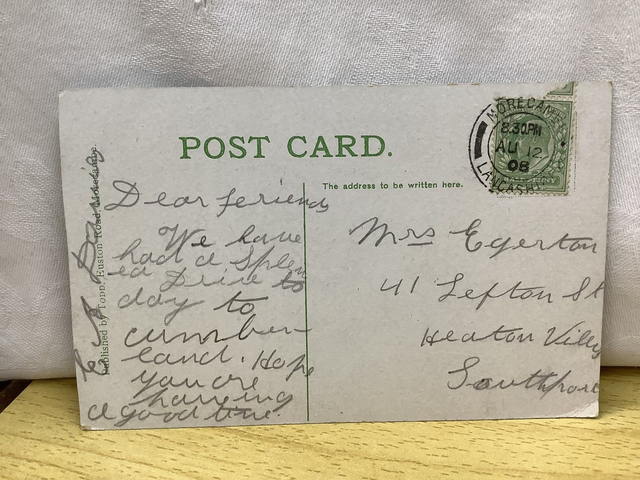 POST CARD.
MORECAMBE
8.30PM
AU 12
08
LANCASHIRE
The address to be written here.
Dear feriends
We have
had a splen
ed Drive to
day to
cumber-
land. Hope
you are
haveing
a good time
Mrs Egerton
41 Sefton St
Heaton Villy
Southpore
Published by Topp, Euston Road, Morecambe.